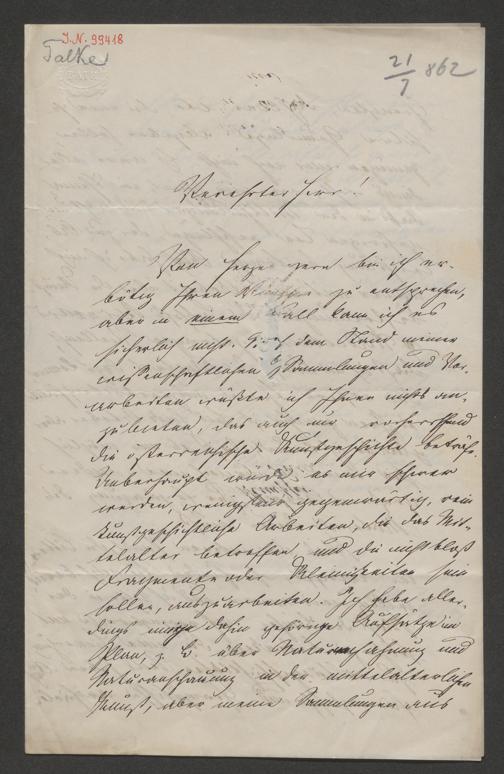 J.N. 99418
Falke
21/7 862
Verehrter Herr!
Von Herzen gern bin ich er-
bötig Ihren Wünschen zu entsprechen,
aber in einem Fall kann ich es
sicherlich nicht. Nach dem Stand meiner
wissenschaftlichen Sammlungen und Vor-
arbeiten wüßte ich Ihnen nichts an-
zubieten, das auch nur vorherrschend
die österreichische Kunstgeschichte beträfe.
Ueberhaupt würde es mir schwer
werden, wenigstens gegenwärtig, rein
kunstgeschichtliche Arbeiten, die das Mit-
telalter betreffen und die nicht bloß
Fragmente oder Kleinigkeiten sein
sollen, auszuarbeiten. Ich habe aller-
dings einige dahin gehörige Aufsätze im
Plan, z. B. über Naturnachahmung und
Naturanschauung in der mittelalterlichen
Kunst, aber meine Sammlungen aus